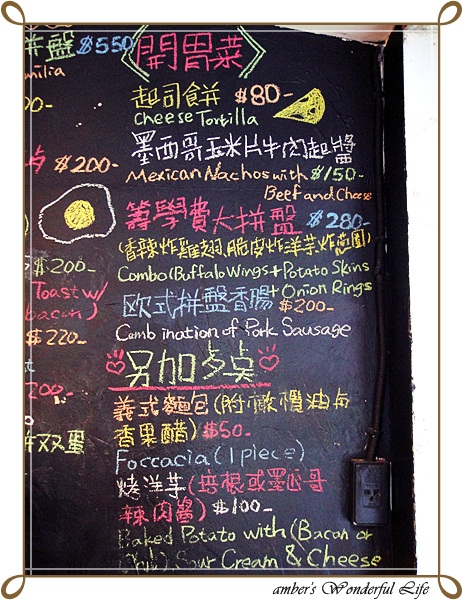 拼盤 $550
milia
0-
$200-
$200-
Toast w/
bacon)
$220-
200-
双蛋
《開胃菜》
起司餅 $80-
Cheese Tortilla
墨西哥玉米片牛肉起醬
Mexican Nachos with $150-
Beef and Cheese
籌學費大拼盤 $280-
(香辣炸雞翅,脆皮炸洋芋,炸蔥圈)
Combo (Buffalo Wings + Potato Skins
+ Onion Rings
欧式拼盤香腸 $200-
Combination of Pork Sausage
另加多点
義式麵包(附橄欖油与
香果醋) $50-
Foccacia (1 piece)
烤洋芋(培根或墨西哥
辣肉醬) $100-
Baked Potato with (Bacon or
Chili) Sour Cream & Cheese
amber's Wonderful Life